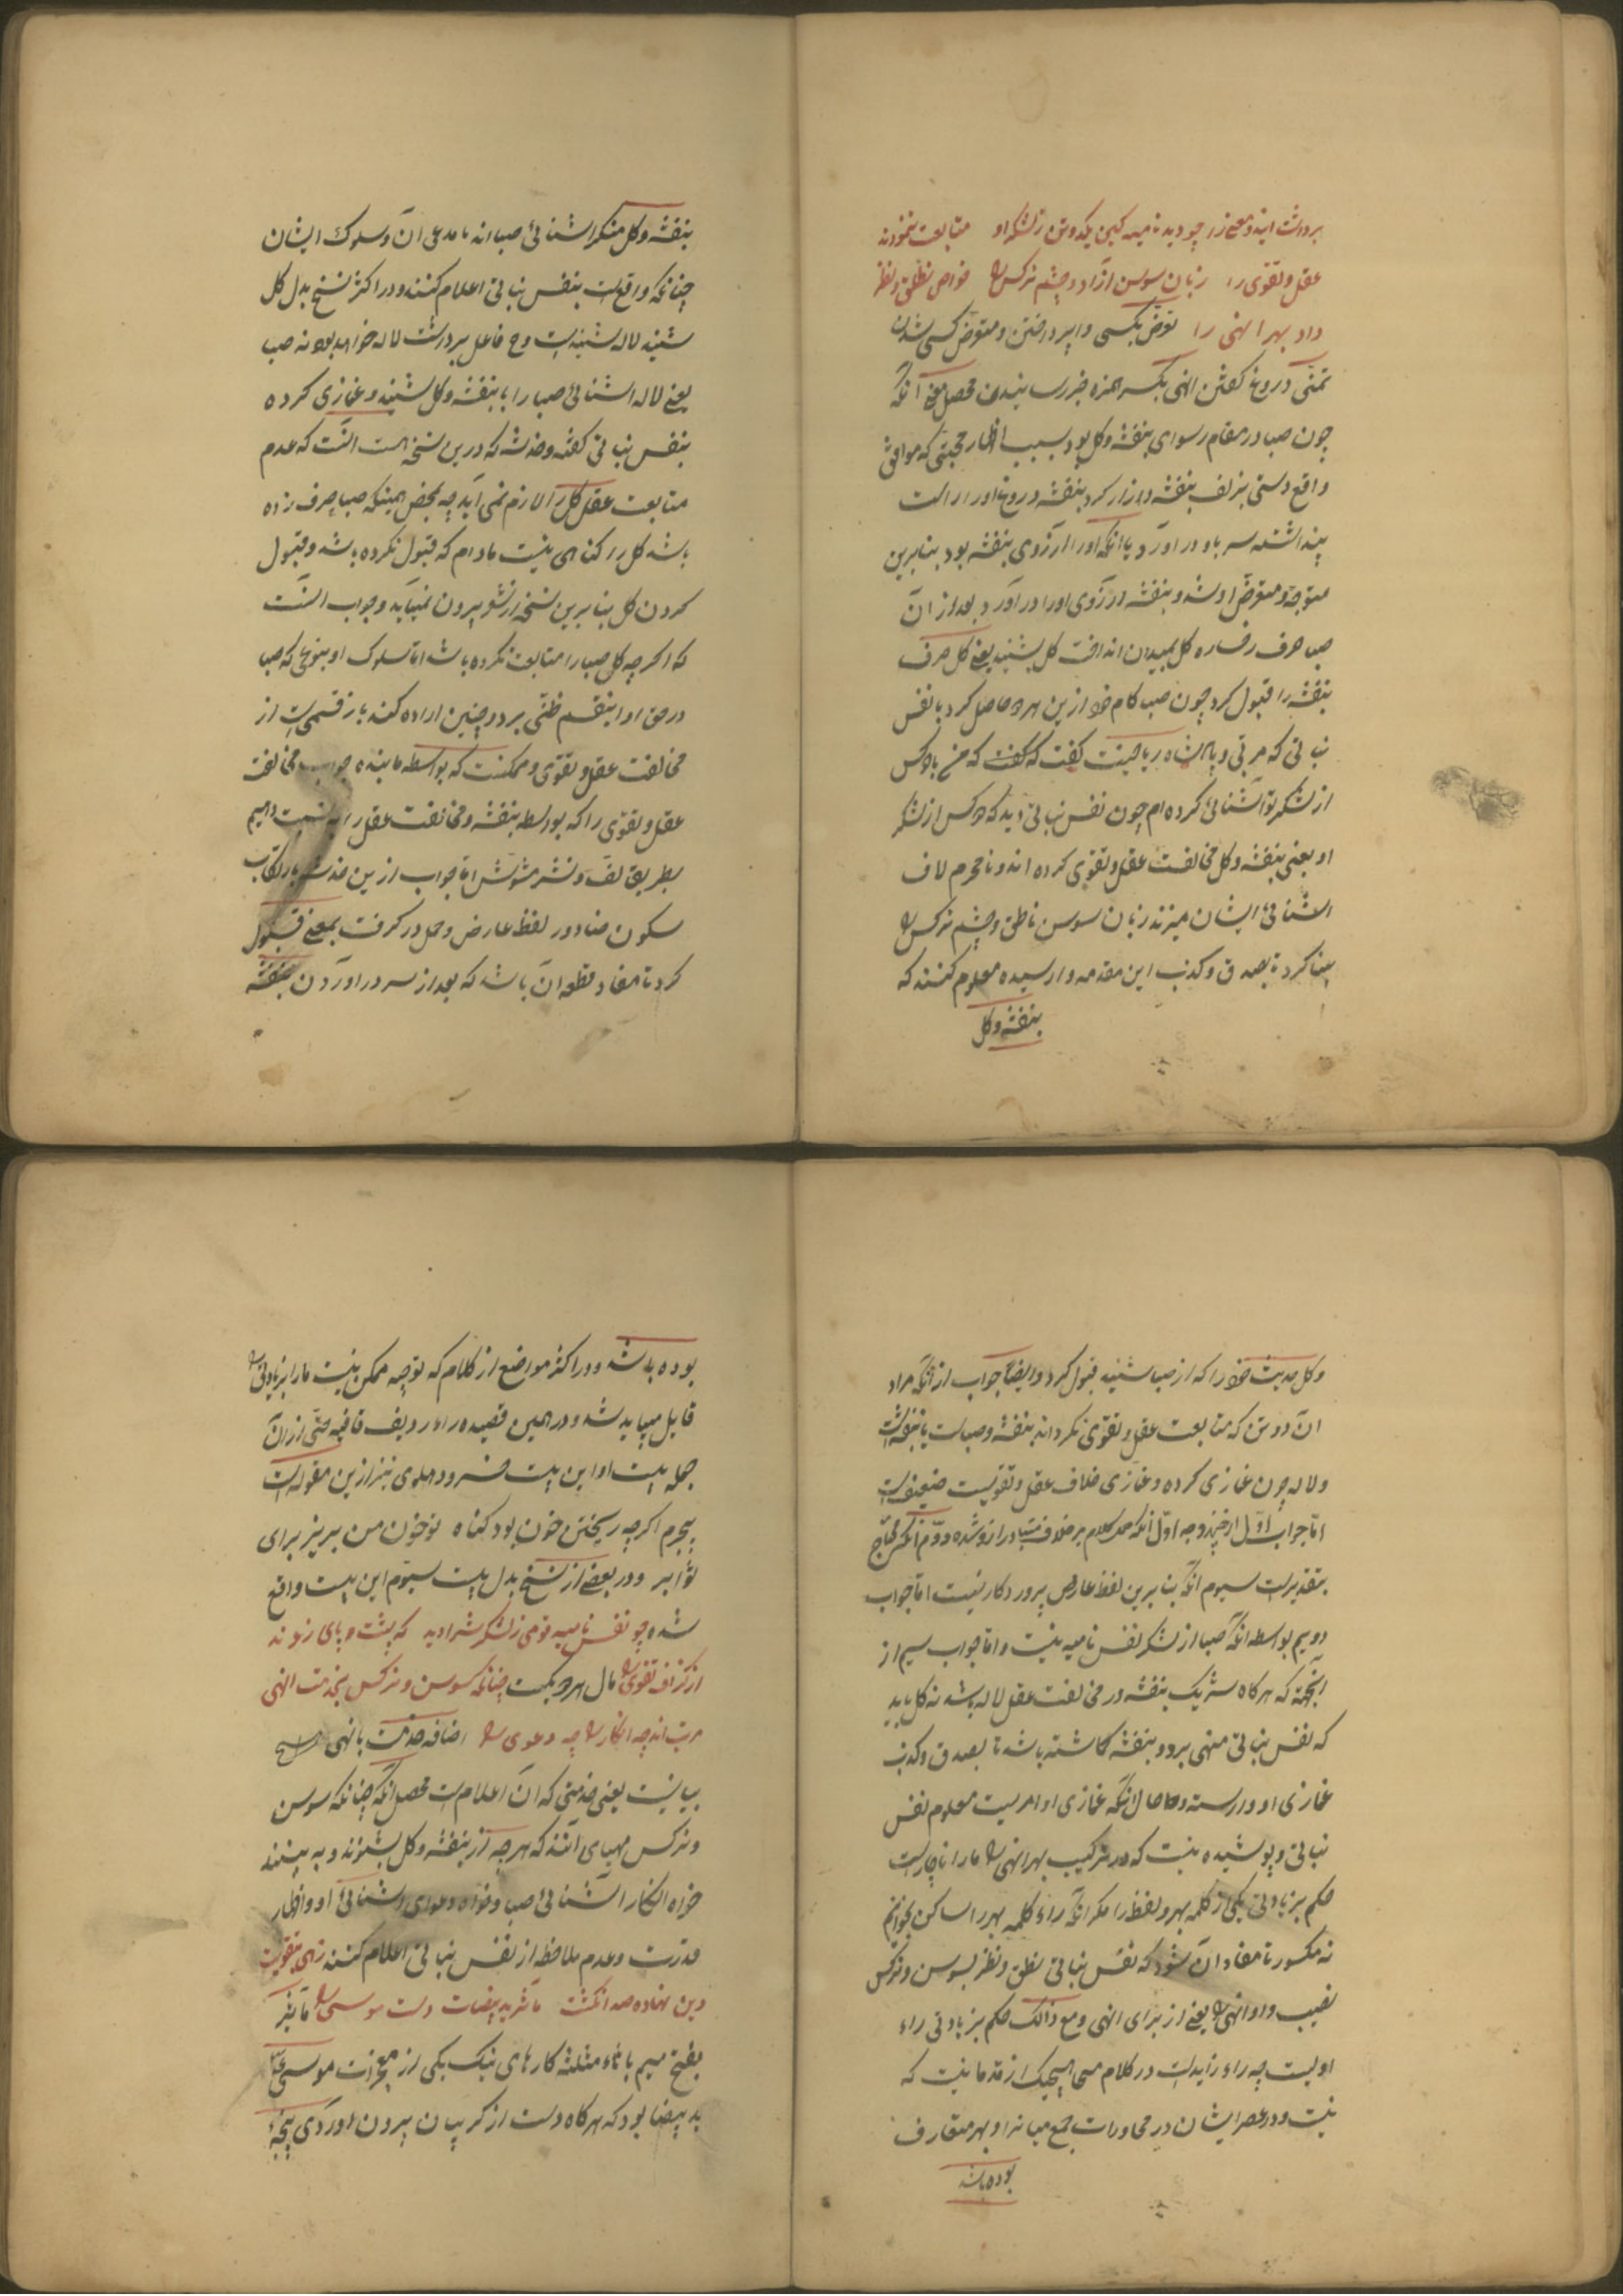 برداشت این دو معنی را چو دید نامیه کین یکدو تن ز لشکر او متابعت ننمودند
عقل و تقوی را زبان سوسن آزاد و چشم نرکس را خواص نطق و نظر
داد بهر انهی را تعرض بکسی وا پرداختن و متعرض کسی شدن
تمنی دروغ کفتن انهی بکسر همزه خبر رسانیدن محصل معنی آنکه
چون صبا در مقام رسوای بنفشه و کل بود بسبب اظهار محبتی که موافق
واقع دستی بزلف بنفشه دراز کرد بنفشه دروغ او را راست
پنداشته سر باو در اورد با آنکه او را آرزوی بنفشه بود بنابرین
متوجه و متعرض او شد و بنفشه آرزوی او را در آورد بعد از ان
صبا حرف رخساره کل بمیدان انداخت کل بشنید یعنی کل حرف
بنفشه را قبول کرد چون صبا کام خود ازین هر دو حاصل کرد با نفس
نباتی که مربی و پادشاه ریاحینست کفت که من با دو کس
از لشکر تو آشنائی کرده ام چون نفس نباتی دید که دو کس از لشکر
او یعنی بنفشه و کل مخالفت عقل و تقوی کرده اند و نامحرم لاف
اشنائی ایشان میزند زبان سوسن ناطق و چشم نرکس را
بینا کرد تا بصدق و کذب این مقدمه وا رسیده معلوم کنند که
بنفشه و کل
بنفشه و کل منکر اشنائی صبا اند یا مدعی ان و سلوک ایشان
چنانکه واقع است بنفس نباتی اعلام کنند و در اکثر نسخ بدل کل
شنید لاله شنید است و ح فاعل برداشت لاله خواهد بود نه صبا
یعنی لاله اشنائی صبا را با بنفشه و کل شنید و غمازی کرده
بنفس نباتی کفته و خدشه که درین نسخه است آنست که عدم
متابعت عقل کل را لازم نمی آید چه بمحض اینکه صبا حرف زده
باشد کل را کناهی نیست مادام که قبول نکرده باشد و قبول
کردن کل بنابرین نسخه از شعر بیرون نمییاید و جواب آنست
که اکرچه کل صبا را متابعت نکرده باشد اما سلوک او بنوعی که صبا
در حق او اینقسم ظنی برد و چنین اراده کند باز قسمی است از
مخالفت عقل و تقوی و ممکنست که بواسطه ما بنده جواب مخالفت
عقل و تقوی را که بواسطه بنفشه و مخالفت عقل را به نسبت دهیم
بطریق لف و نشر مشوش اما جواب ازین خدشه بارتکاب
سکون ضاد در لفظ عارض و حمل در کرفت بمعنی قبول
کرد تا مفاد قطعه آن باشد که بعد از سر در اوردن بنفشه
و کل حدیث خود را که از صبا شنید قبول کرد و ایضا جواب از آنکه مراد
ان دو تن که متابعت عقل و تقوی نکرد اند بنفشه و صباست یا بنفشه است
و لاله چون غمازی کرده و غمازی خلاف عقل و تقویست ضعیف است
اما جواب اول از چند وجه اول آنکه حمل کلام بر خلاف متبادر ازو شده دوم آنکس محتاج
بتقدیر است سیوم آنکه بنابرین لفظ عارض پرور دکار نیست اما جواب
دویم بواسطه آنکه صبا از لشکر نفس نامیه نیست و اما جواب سیم از
آنجهة که هرکاه شریک بنفشه در مخالفت عقل لاله باشد نه کل باید
که نفس نباتی منهی بر دو بنفشه کماشته باشد تا بصدق و کذب
غمازی او وا رسته و حاصل آنکه غمازی او امریست معلوم نفس
نباتی و پوشیده نیست که در ترکیب بهر انهی را ما را ناچار است
حکم بزیادتی یکی از کلمه بهر و لفظ را مکر آنکه راء کلمه بهر را ساکن بخوانیم
نه مکسور تا مفاد آن شود که نفس نباتی نطق و نظر بسوسن و نرکس
نصیب داد انهی را یعنی از برای انهی و مع ذلک حکم بزیادتی راء
اولیست چه راء زاید است در کلام مسحا هیچیک از قدما نیست که
نیست و در عصر ایشان در محاورات جمع میانه را و بهر متعارف
بوده باشد
بوده باشد و در اکثر مواضع از کلام که توجیه ممکن نیست ما را بزیادتی را
قابل میباید شد و در همین قصیده را در ردیف قافیه حتی از ان
جمله بیت او این بیت خسرو دهلوی نیز ازین مقوله است
بیجرم اکرچه ریختن خون بود کناه تو خون من بریز برای
ثوابرا و در بعضی از نسخ بدل بیت سیوم این بیت واقع
شده چو نفس نامیه قومی ز لشکرش را دید که پشت و پای زدند
از کزاف تقوی را مال هر دو یکست چنانکه سوسن و نرکس بخدمت انهی
مرتب اند چه انکار را چه دعوی را اضافه خدمت بانهی
بیانیست یعنی خدمتی که ان اعلام است محصل آنکه چنانکه سوسن
و نرکس مهیای آنند که هر چه از بنفشه و کل بشنوند و به بینند
خواه انکار آشنائی صبا و خواه دعوای اشنائی او و اظهار
قدرت و عدم ملاحظه از نفس نباتی اعلام کنند زهی بتقویت
دین نهاده صد انکشت ماثر ید بیضات دست موسی را ماثر
بفتح میم با ثاء مثلثه کارهای نیک یکی از معجزات موسی ع
ید بیضا بود که هرکاه دست از کریبان بیرون اوردی پنجه